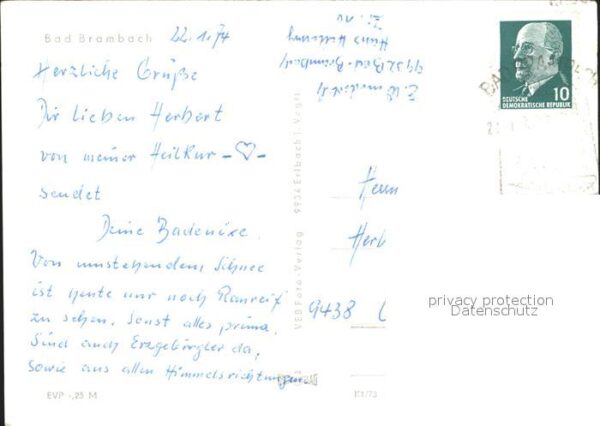 Bad Brambach
22.1.74
Herzliche Grüße
Dir lieben Herbert
von meiner Heilkur -♡-
sendet
Deine Badenixe.
Von umstehendem Schnee
ist heute nur noch Raureif
zu sehen. Sonst alles prima.
Sind auch Erzgebürgler da,
sowie aus allen Himmelsrichtungen.
EVP -,25 M
9932 Bad-Brambach
VEB Foto-Verlag 9934 Erlbach i. Vogtl.
K1/73
Herrn
Herb
9438
10
DEUTSCHE
DEMOKRATISCHE REPUBLIK
privacy protection
Datenschutz